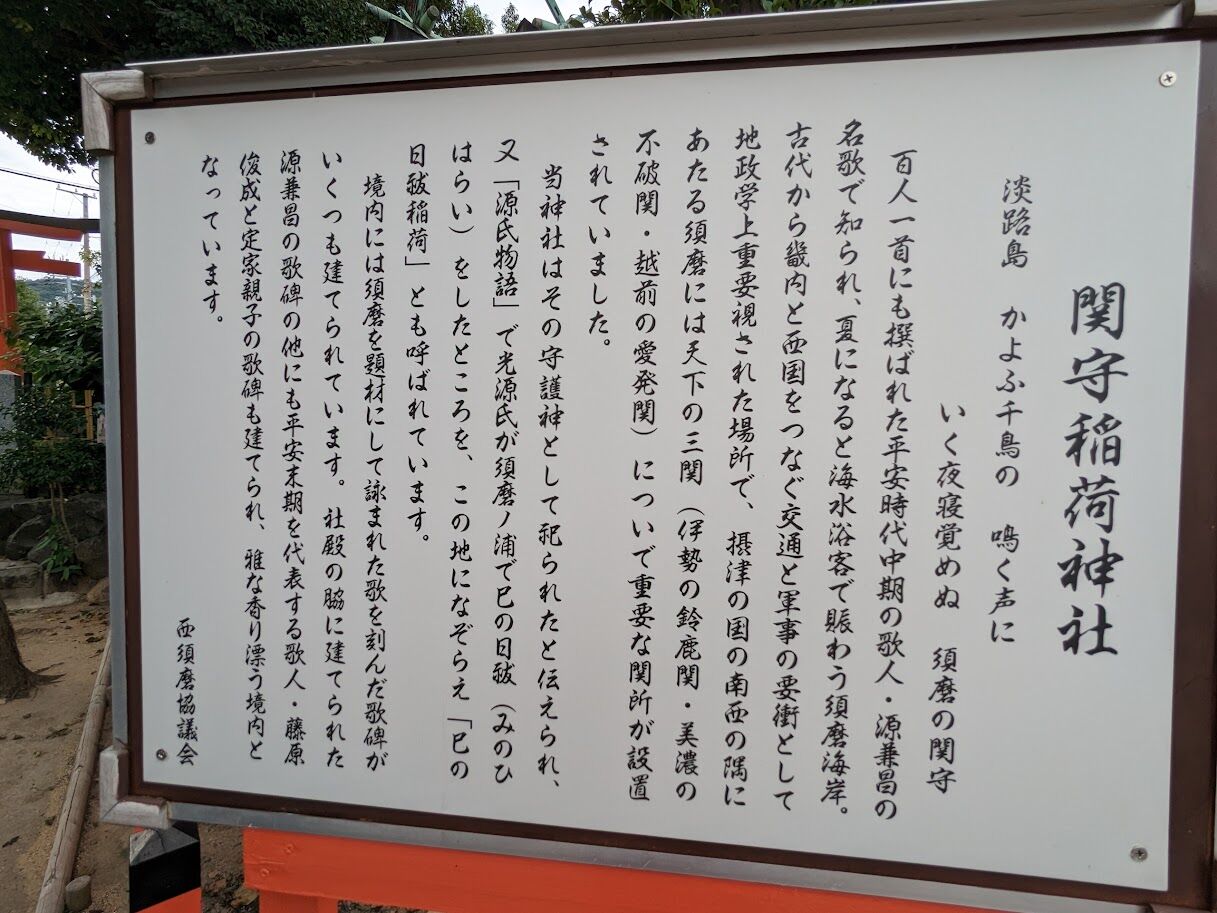 関守稲荷神社
淡路島　かよふ千鳥の　鳴く声に
いく夜寝覚めぬ　須磨の関守
百人一首にも撰ばれた平安時代中期の歌人・源兼昌の
名歌で知られ、夏になると海水浴客で賑わう須磨海岸。
古代から畿内と西国をつなぐ交通と軍事の要衝として
地政学上重要視された場所で、摂津の国の南西の隅に
あたる須磨には天下の三関（伊勢の鈴鹿関・美濃の
不破関・越前の愛発関）について重要な関所が設置
されていました。
当神社はその守護神として祀られたと伝えられ、
又「源氏物語」で光源氏が須磨ノ浦で巳の日祓（みのひ
はらい）をしたところを、この地になぞらえ「巳の
日祓稲荷」とも呼ばれています。
境内には須磨を題材にして詠まれた歌を刻んだ歌碑が
いくつも建てられています。社殿の脇に建てられた
源兼昌の歌碑の他にも平安末期を代表する歌人・藤原
俊成と定家親子の歌碑も建てられ、雅な香り漂う境内と
なっています。
西須磨協議会